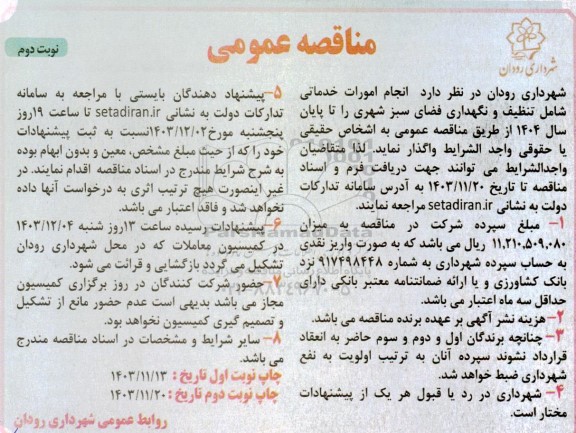 شهرداری رودان
مناقصه عمومی
نوبت دوم
شهرداری رودان در نظر دارد انجام امورات خدماتی
شامل تنظیف و نگهداری فضای سبز شهری را تا پایان
سال ۱۴۰۴ از طریق مناقصه عمومی به اشخاص حقیقی
یا حقوقی واجد الشرایط واگذار نماید. لذا متقاضیان
واجدالشرایط می توانند جهت دریافت فرم و اسناد
مناقصه تا تاریخ ۱۴۰۳/۱۱/۲۰ به آدرس سامانه تدارکات
دولت به نشانی setadiran.ir مراجعه نمایند.
۱- مبلغ سپرده شرکت در مناقصه به میزان
۱۱.۲۱۰.۵۰۹.۰۸۰ ریال می باشد که به صورت واریز نقدی
به حساب سپرده شهرداری به شماره ۹۱۷۴۹۸۴۴۸ نزد
بانک کشاورزی و یا ارائه ضمانتنامه معتبر بانکی دارای
حداقل سه ماه اعتبار می باشد.
۲-هزینه نشر آگهی بر عهده برنده مناقصه می باشد.
۳- چنانچه برندگان اول و دوم و سوم حاضر به انعقاد
قرارداد نشوند سپرده آنان به ترتیب اولویت به نفع
شهرداری ضبط خواهد شد.
۴- شهرداری در رد یا قبول هر یک از پیشنهادات
مختار است.
۵-پیشنهاد دهندگان بایستی با مراجعه به سامانه
تدارکات دولت به نشانی setadiran.ir تا ساعت ۱۹روز
پنجشنبه مورخ۱۴۰۳/۱۲/۰۲نسبت به ثبت پیشنهادات
خود را که از حیث مبلغ مشخص، معین و بدون ابهام بوده
به شرح شرایط مندرج در اسناد مناقصه اقدام نمایند. در
غیر اینصورت هیچ ترتیب اثری به درخواست آنها داده
نخواهد شد و فاقد اعتبار می باشد.
۶-پیشنهادات رسیده ساعت ۱۳روز شنبه ۱۴۰۳/۱۲/۰۴
در کمیسیون معاملات که در محل شهرداری رودان
تشکیل می گردد بازگشایی و قرائت می شود.
۷-حضور شرکت کنندگان در روز برگزاری کمیسیون
مجاز می باشد بدیهی است عدم حضور مانع از تشکیل
و تصمیم گیری کمیسیون نخواهد بود.
۸- سایر شرایط و مشخصات در اسناد مناقصه مندرج
می باشد.
چاپ نوبت اول تاریخ : ۱۴۰۳/۱۱/۱۳
چاپ نوبت دوم تاریخ : ۱۴۰۳/۱۱/۲۰
روابط عمومی شهرداری رودان